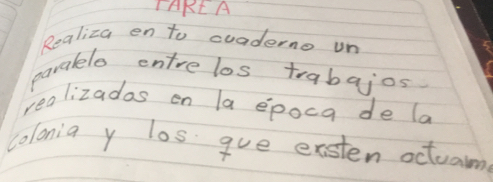 TAREA
Realiza en tu cuaderno un
paralelo entre los trabajos
realizados en la época de la
colonia y los que existen actualm